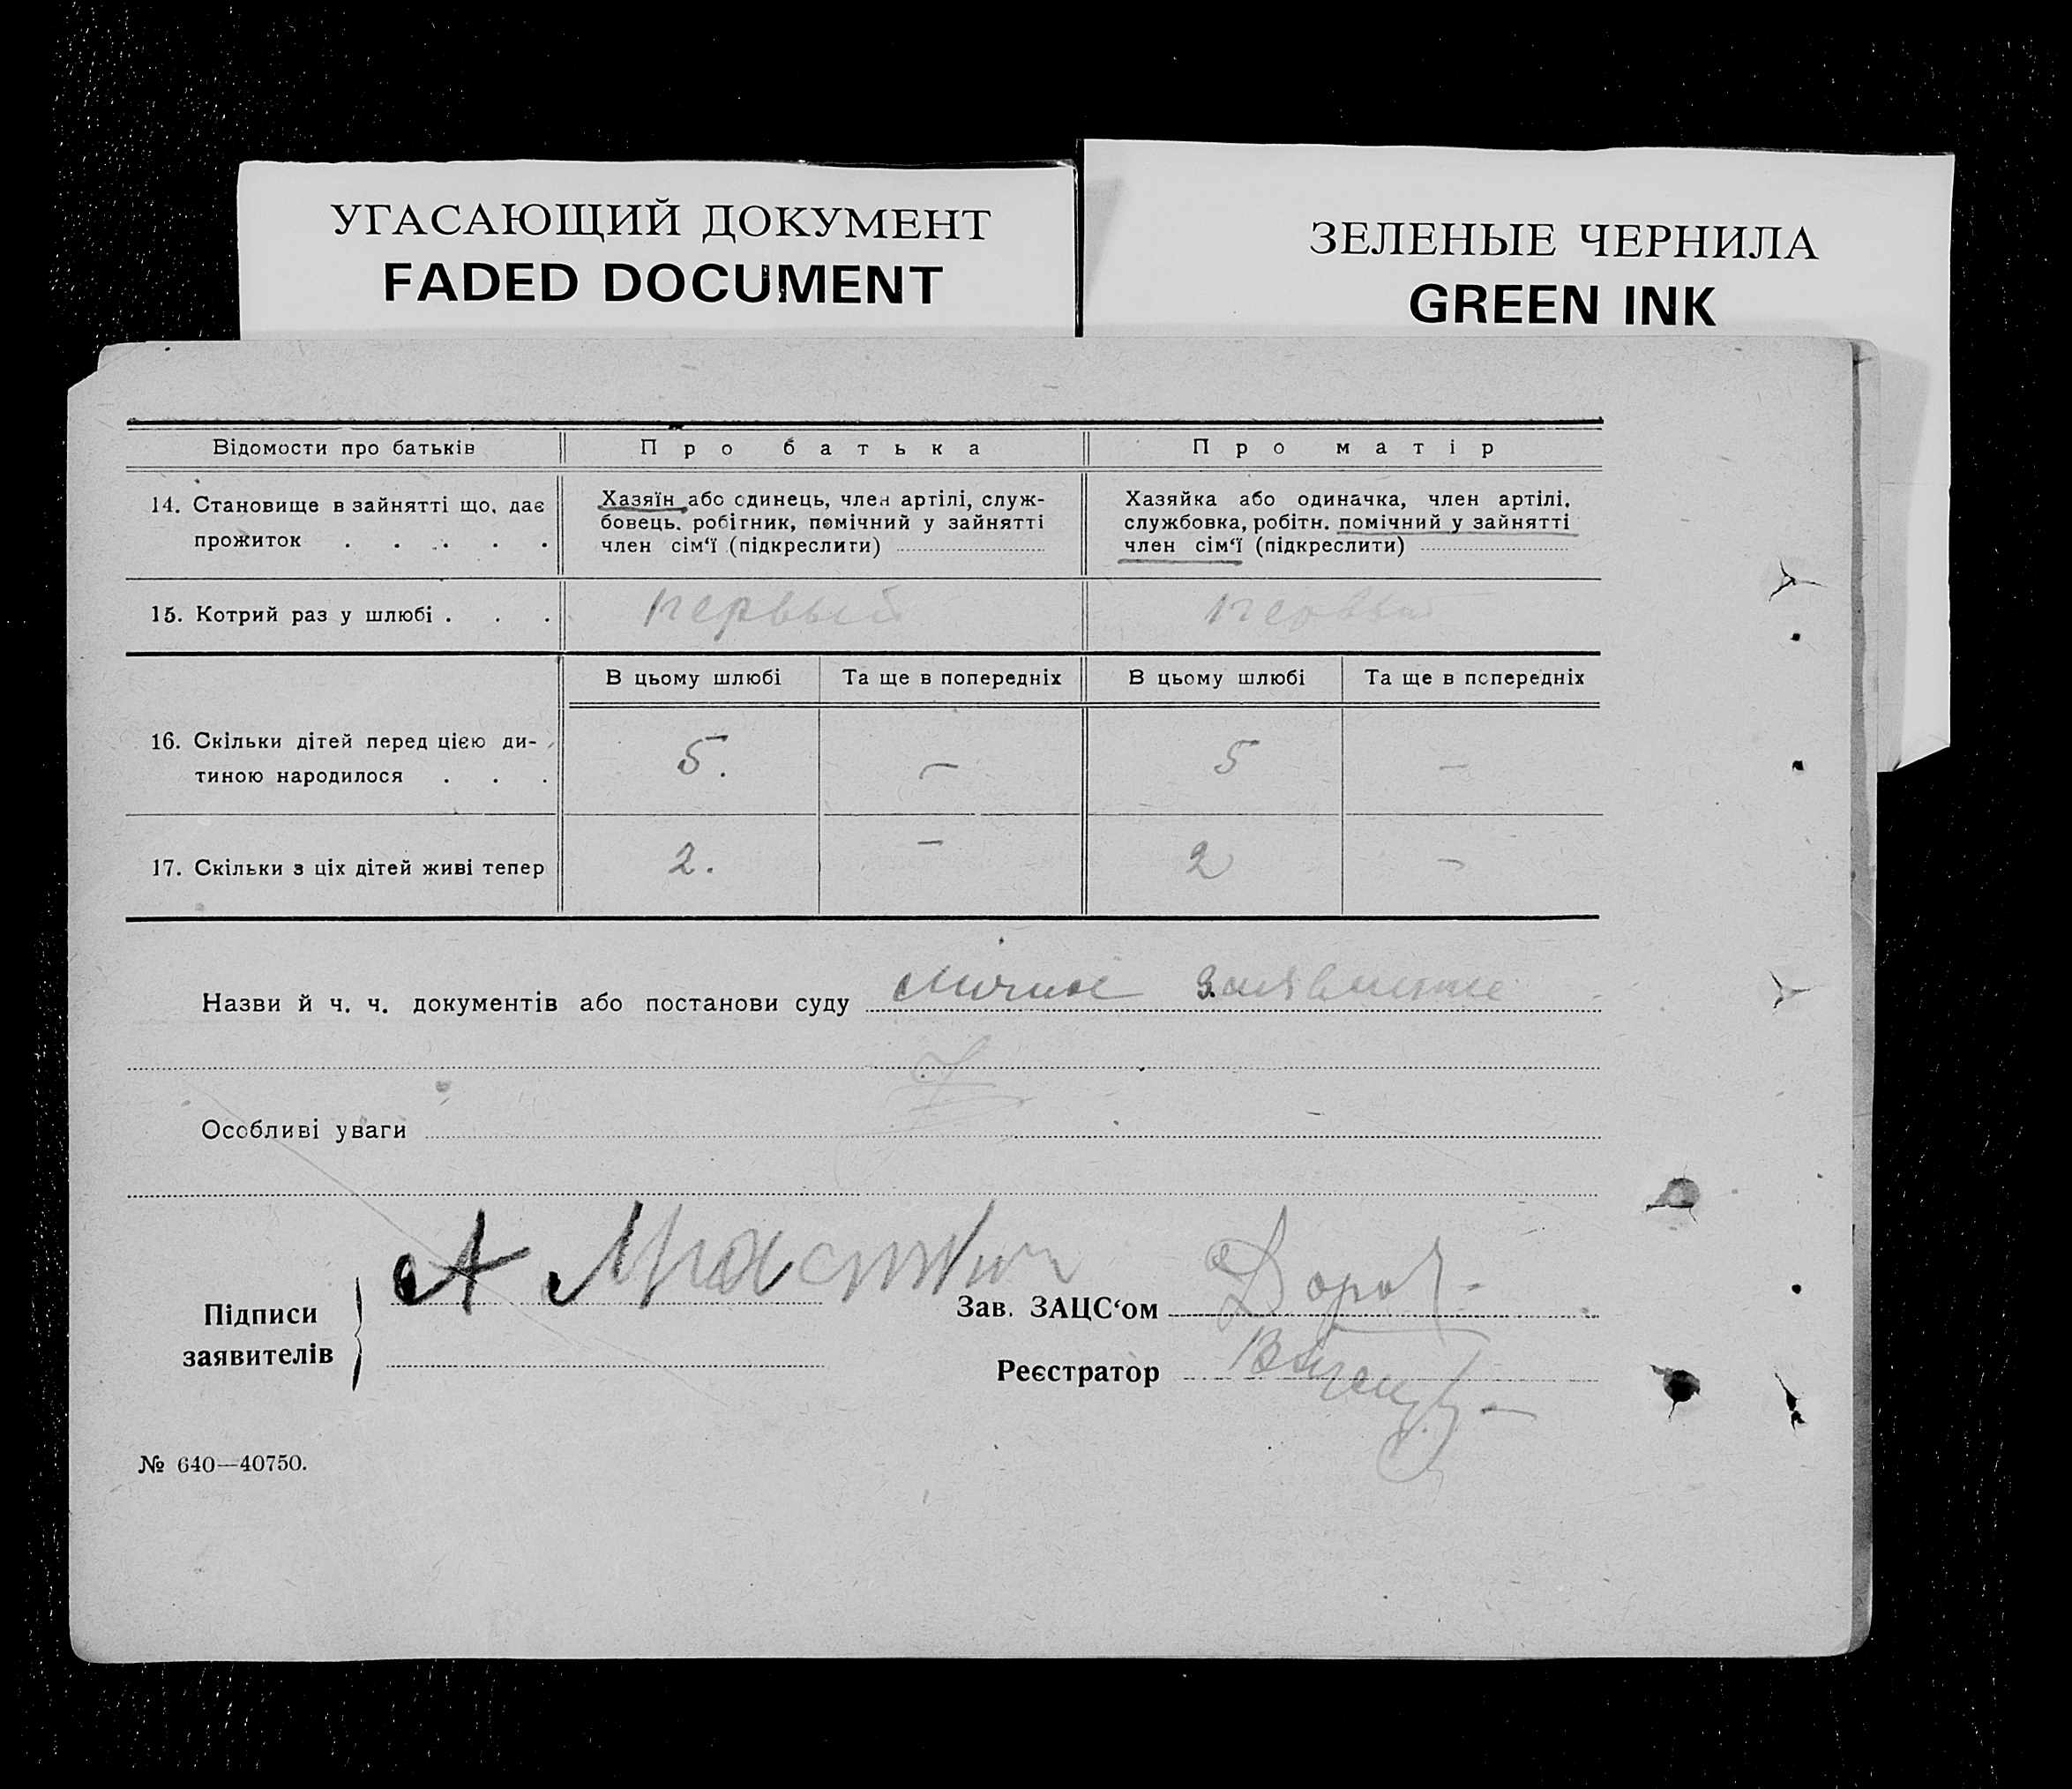 УГАСАЮЩИЙ ДОКУМЕНТ
FADED DOCUMENT
ЗЕЛЕНЫЕ ЧЕРНИЛА
GREEN INK
Відомости про батьків
Про батька
Про матір
14. Становище в зайнятті що, дає
прожиток . . . . .
Хазяїн або одинець, член артілі, служ-
бовець, робітник, помічний у зайнятті
член сім‘ї (підкреслити)
Хазяйка або одиначка, член артілі,
службовка, робітн. помічний у зайнятті
член сім‘ї (підкреслити)
15. Котрий раз у шлюбі . . .
первый
первый
В цьому шлюбі
Та ще в попередніх
В цьому шлюбі
Та ще в попередніх
16. Скільки дітей перед цією ди-
тиною народилося . . .
5.
—
5
—
17. Скільки з ціх дітей живі тепер
2.
—
2
—
Назви й ч. ч. документів або постанови суду личное заявление
Особливі уваги
Підписи
заявителів
А
Зав. ЗАЦС‘ом
Реєстратор
№ 640—40750.